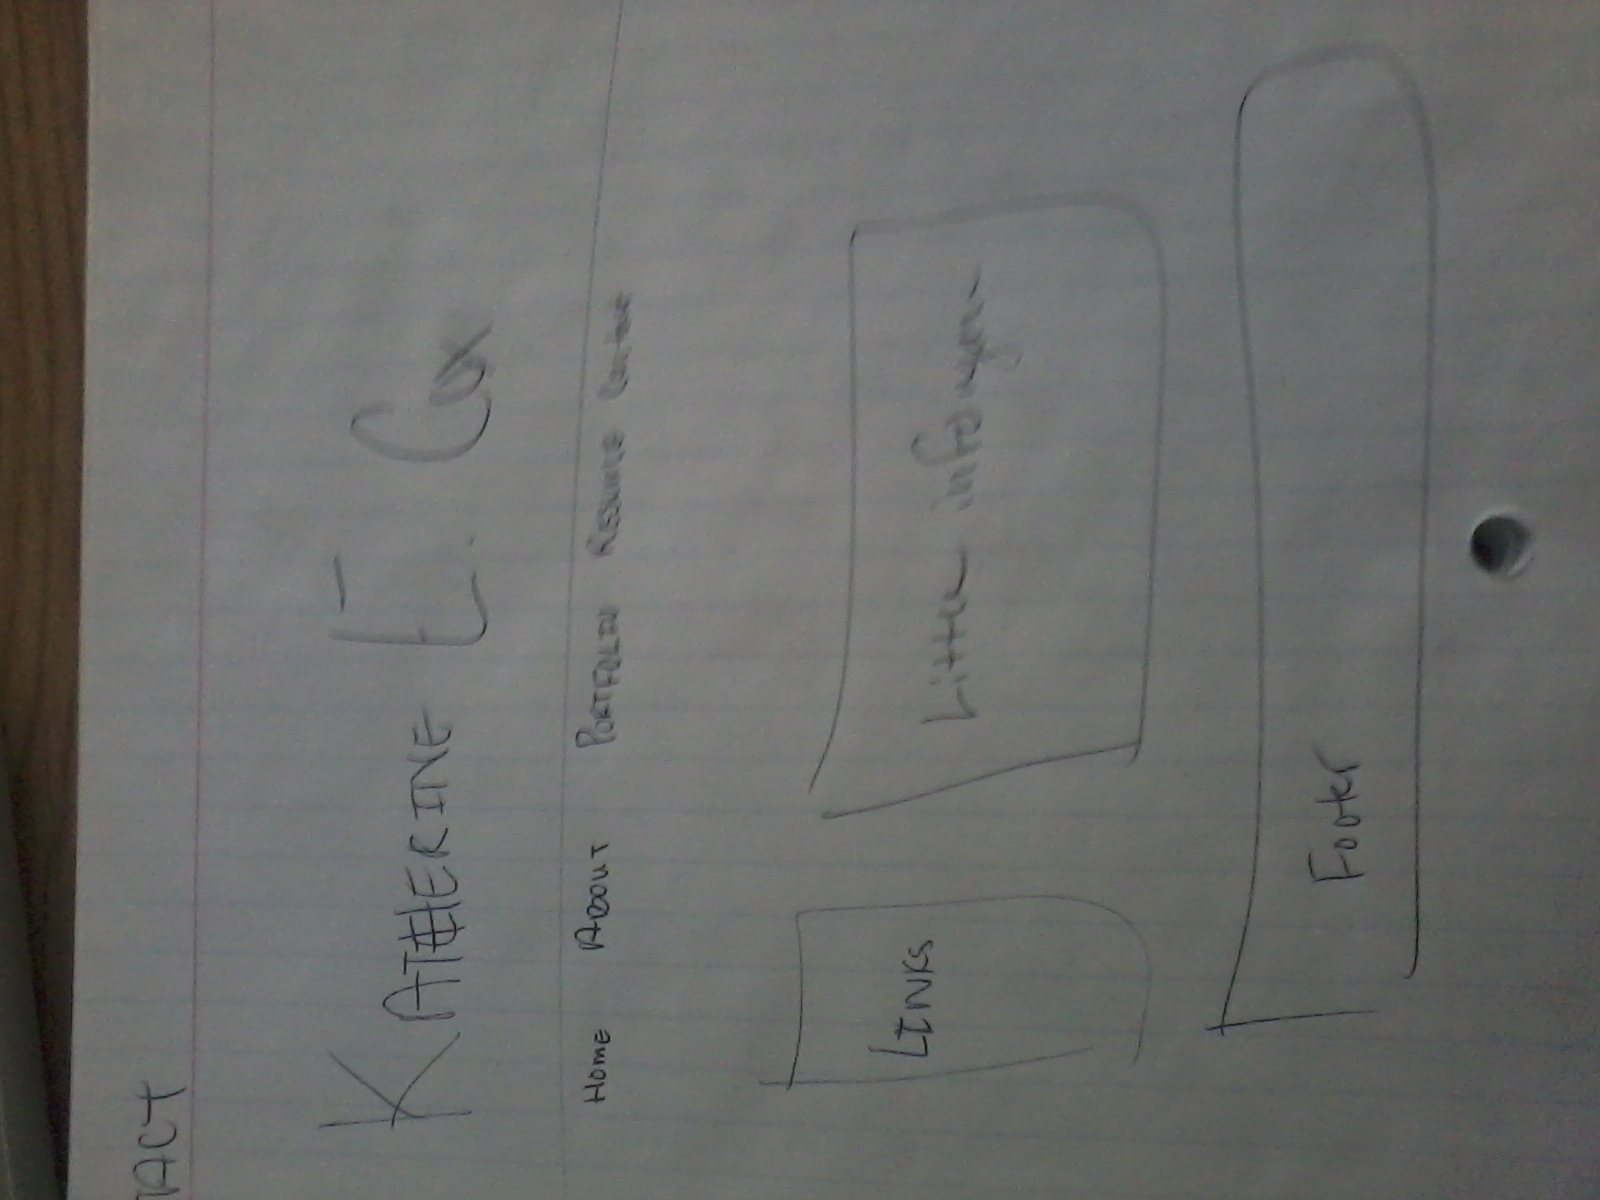 TACT
KATHERINE E. Cox
HOME ABOUT PORTFOLIO RESUME Contact
LINKS
Little info
Footer